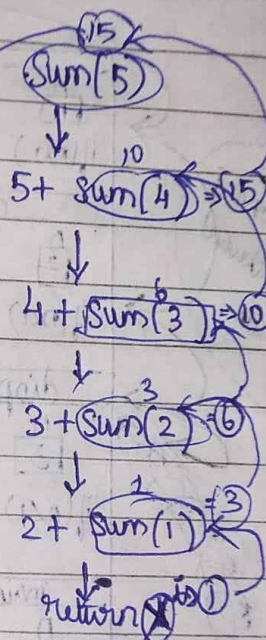 15
Sum(5)
10
5+ Sum(4) ⇒ 15
6
4 + Sum(3) ⇒ 10
3
3 + Sum(2) = 6
1
2 + Sum(1) = 3
return is 1